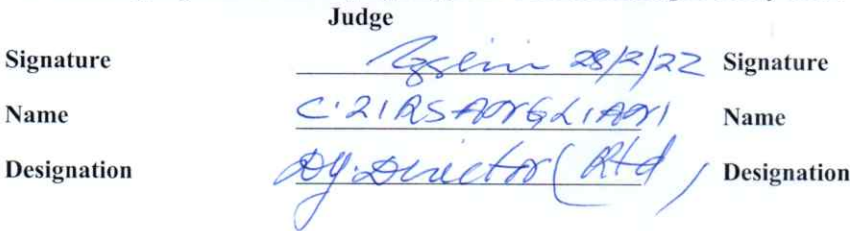 Judge
Signature 28/2/22 Signature
Name C. ZIRSANGLIANI Name
Designation Dy. Director (Rtd) Designation